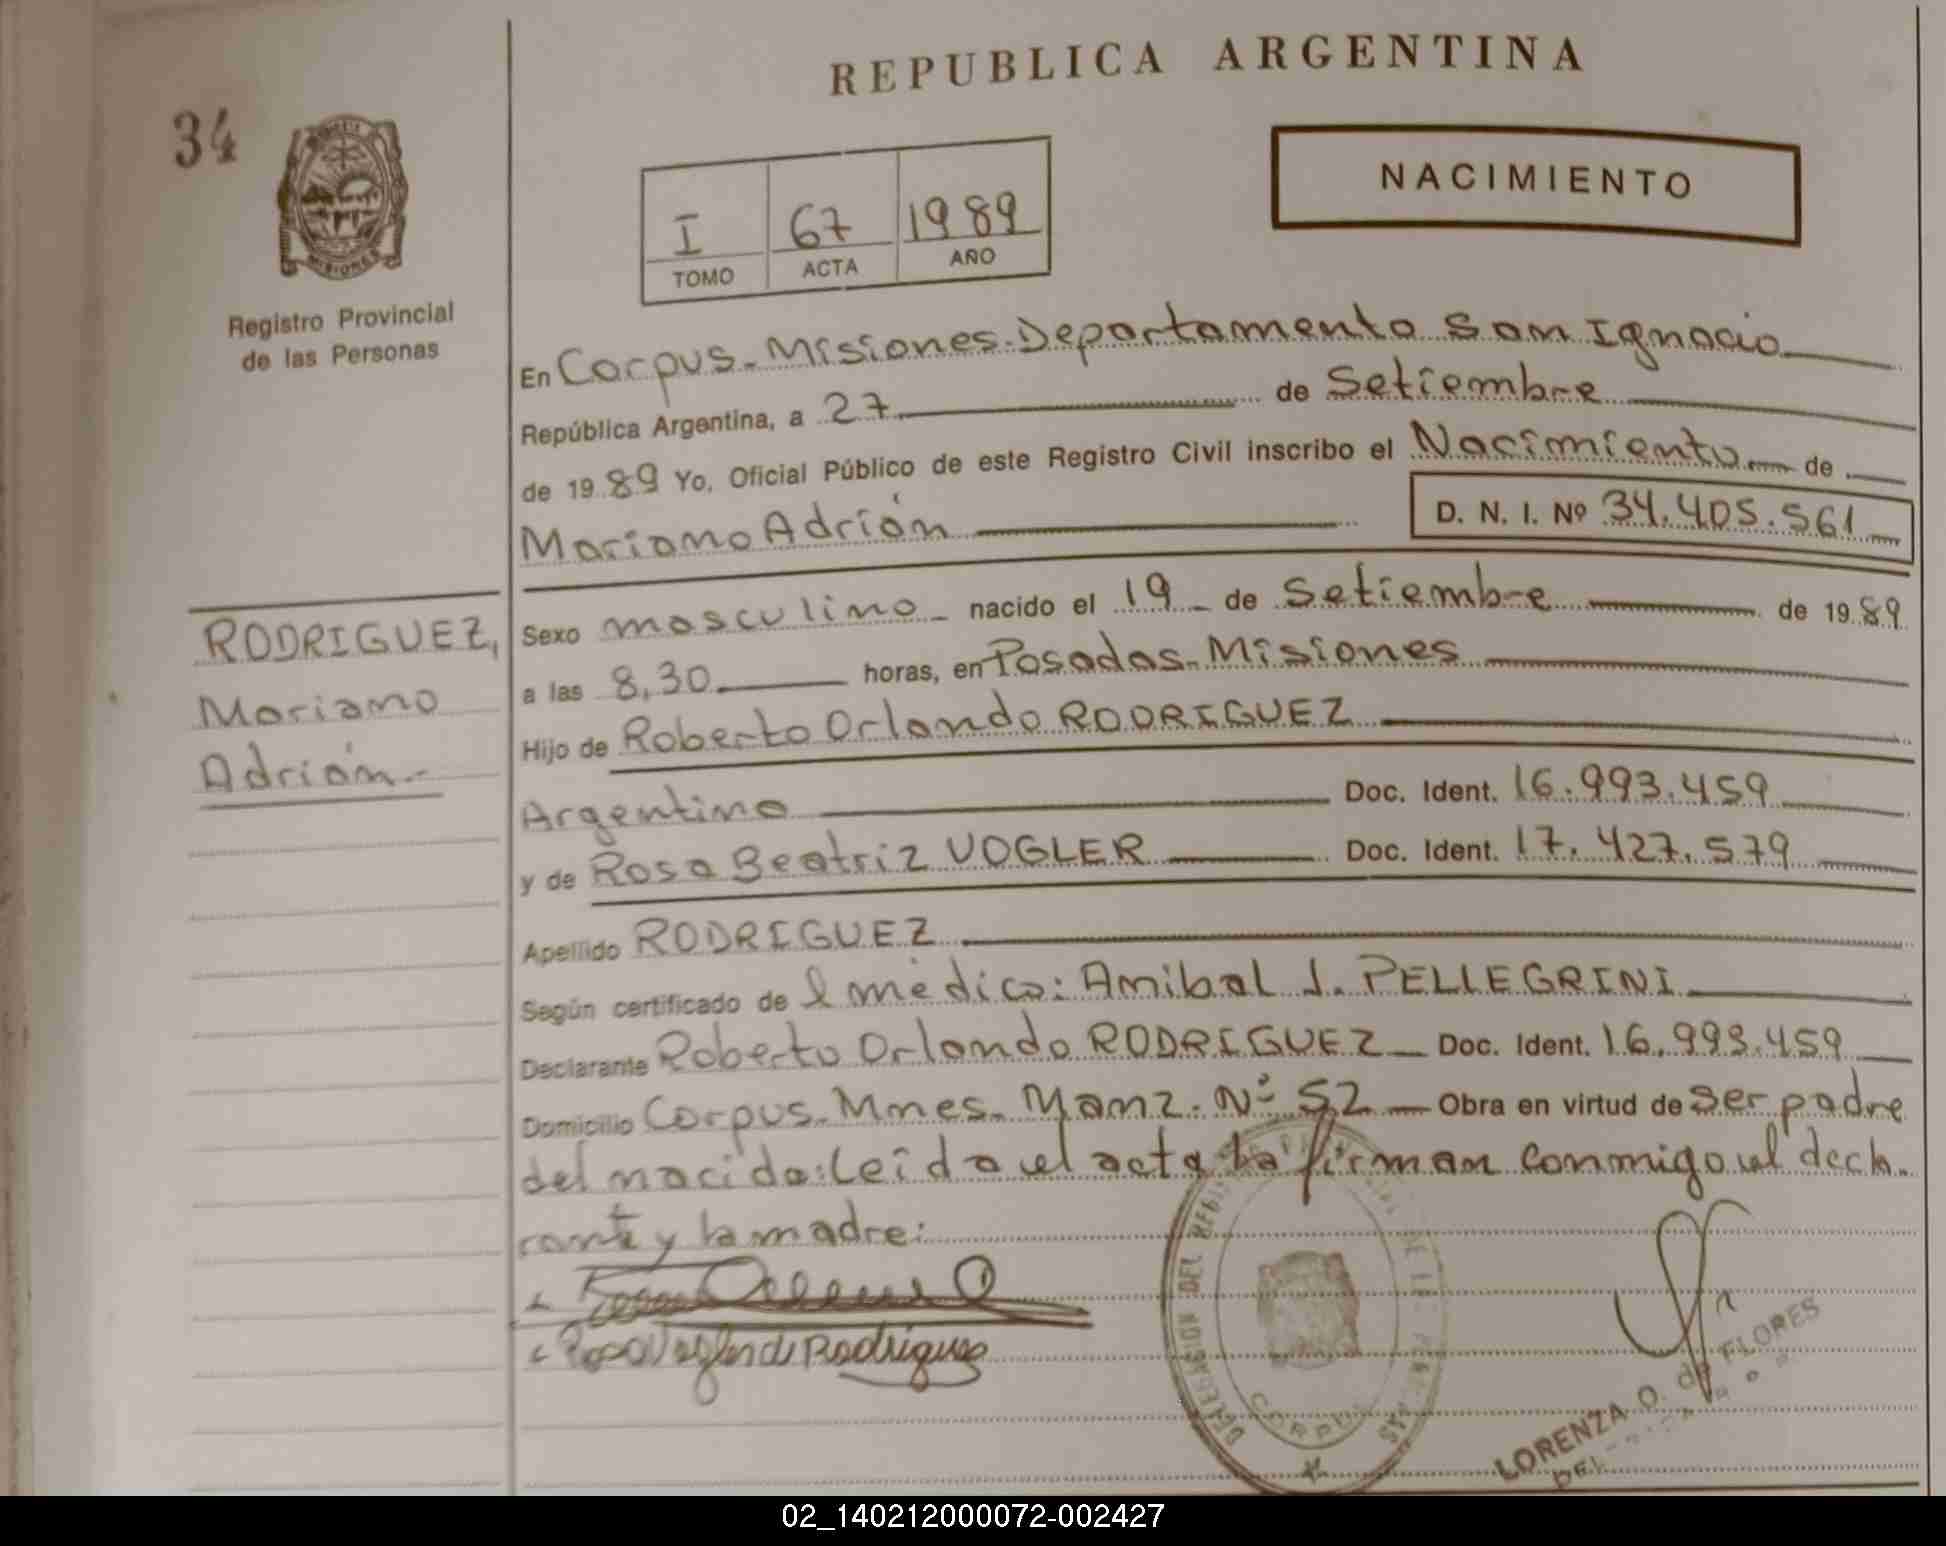 REPUBLICA ARGENTINA
34
NACIMIENTO
I 67 1989
TOMO ACTA AÑO
MISIONES
Registro Provincial
de las Personas
En Corpus - Misiones - Departamento San Ignacio
República Argentina, a 27 de Setiembre
de 1989 Yo, Oficial Público de este Registro Civil inscribo el Nacimiento de
Mariano Adrián D. N. I. Nº 34.405.561
RODRIGUEZ,
Mariano
Adrián.-
Sexo masculino - nacido el 19 - de Setiembre de 1989
a las 8,30 horas, en Posadas - Misiones
Hijo de Roberto Orlando RODRIGUEZ
Argentino Doc. Ident. 16.993.459
y de Rosa Beatriz VOGLER Doc. Ident. 17.427.579
Apellido RODRIGUEZ
Según certificado de l médico: Anibal J. PELLEGRINI
Declarante Roberto Orlando RODRIGUEZ Doc. Ident. 16.993.459
Domicilio Corpus - Mnes. Manz. Nº 52 Obra en virtud de ser padre
del nacido: Leída el acta la firman conmigo el decla-
rante y la madre:
Rosa Vogler de Rodriguez
DELEGACION DEL
CORPUS
LORENZA O. de FLORES
02_140212000072-002427